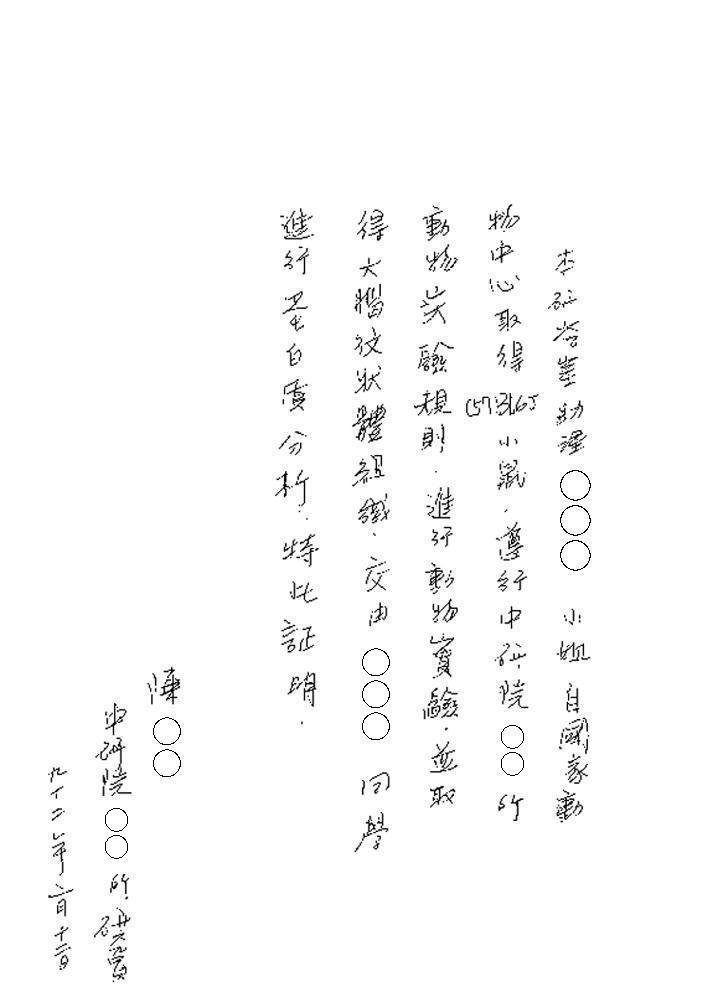 本研究室助理○○○ 小姐自國家動
物中心取得C57BL6J小鼠，遵行中研院○○所
動物实驗規則，進行動物實驗，並取
得大腦紋狀體組織，交由○○○ 同學
進行蛋白質分析，特此証明。
陳○○
中研院○○所研究員
九十二年二月十二日